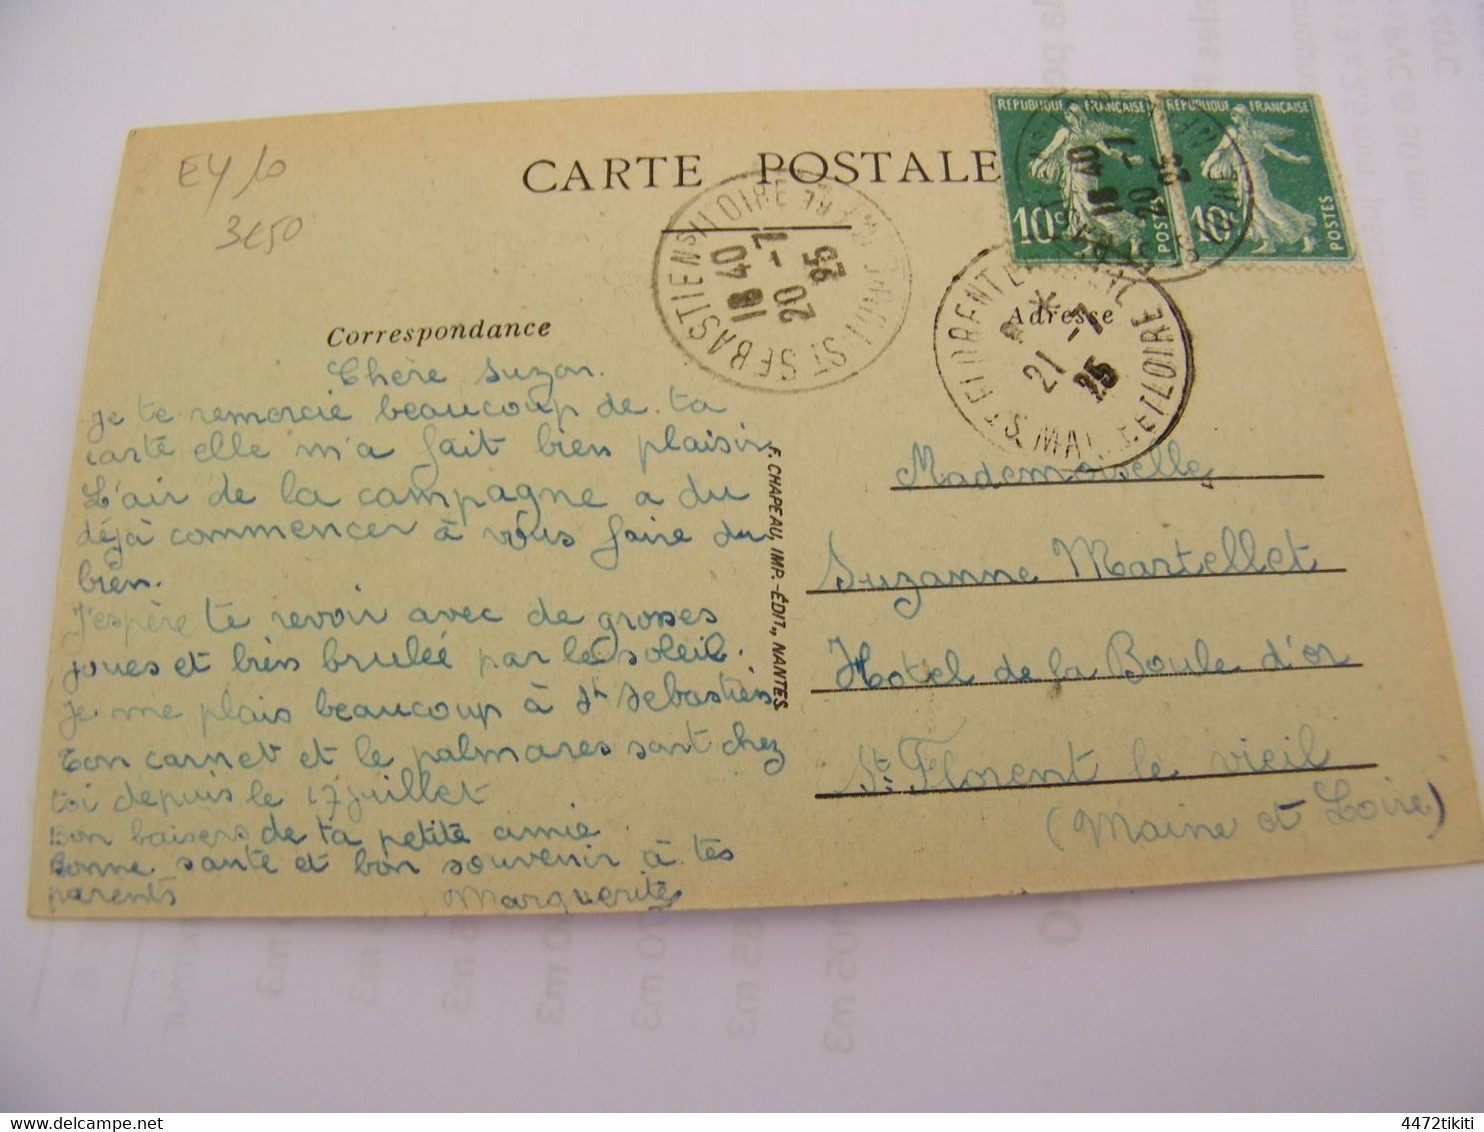 E4/0
3€50
CARTE POSTALE
REPUBLIQUE FRANÇAISE
10c
POSTES
REPUBLIQUE FRANÇAISE
10c
POSTES
ST SEBASTIEN S/LOIRE
18 40
20 -7
25
18 40
20 -7
25
ST FLORENT LE VIEIL
21 -7
25
MAINE ET LOIRE
Correspondance
Adresse
Chère Suzon.
Je te remercie beaucoup de ta
carte elle m'a fait bien plaisir
L'air de la campagne a du
déjà commencer à vous faire du
bien.
J'espère te revoir avec de grosses
joues et bien brulée par le soleil.
Je me plais beaucoup à St Sebastien
Ton carnet et le palmares sont chez
toi depuis le 17 juillet
Bon baisers de ta petite amie
Bonne santé et bon souvenir à tes
parents Marguerite
F. CHAPEAU, IMP.-ÉDIT., NANTES
Mademoiselle,
Suzanne Martellet
Hotel de la Boule d'or
St Florent le vieil
(Maine et Loire)
delcampe.net
4472tikiti